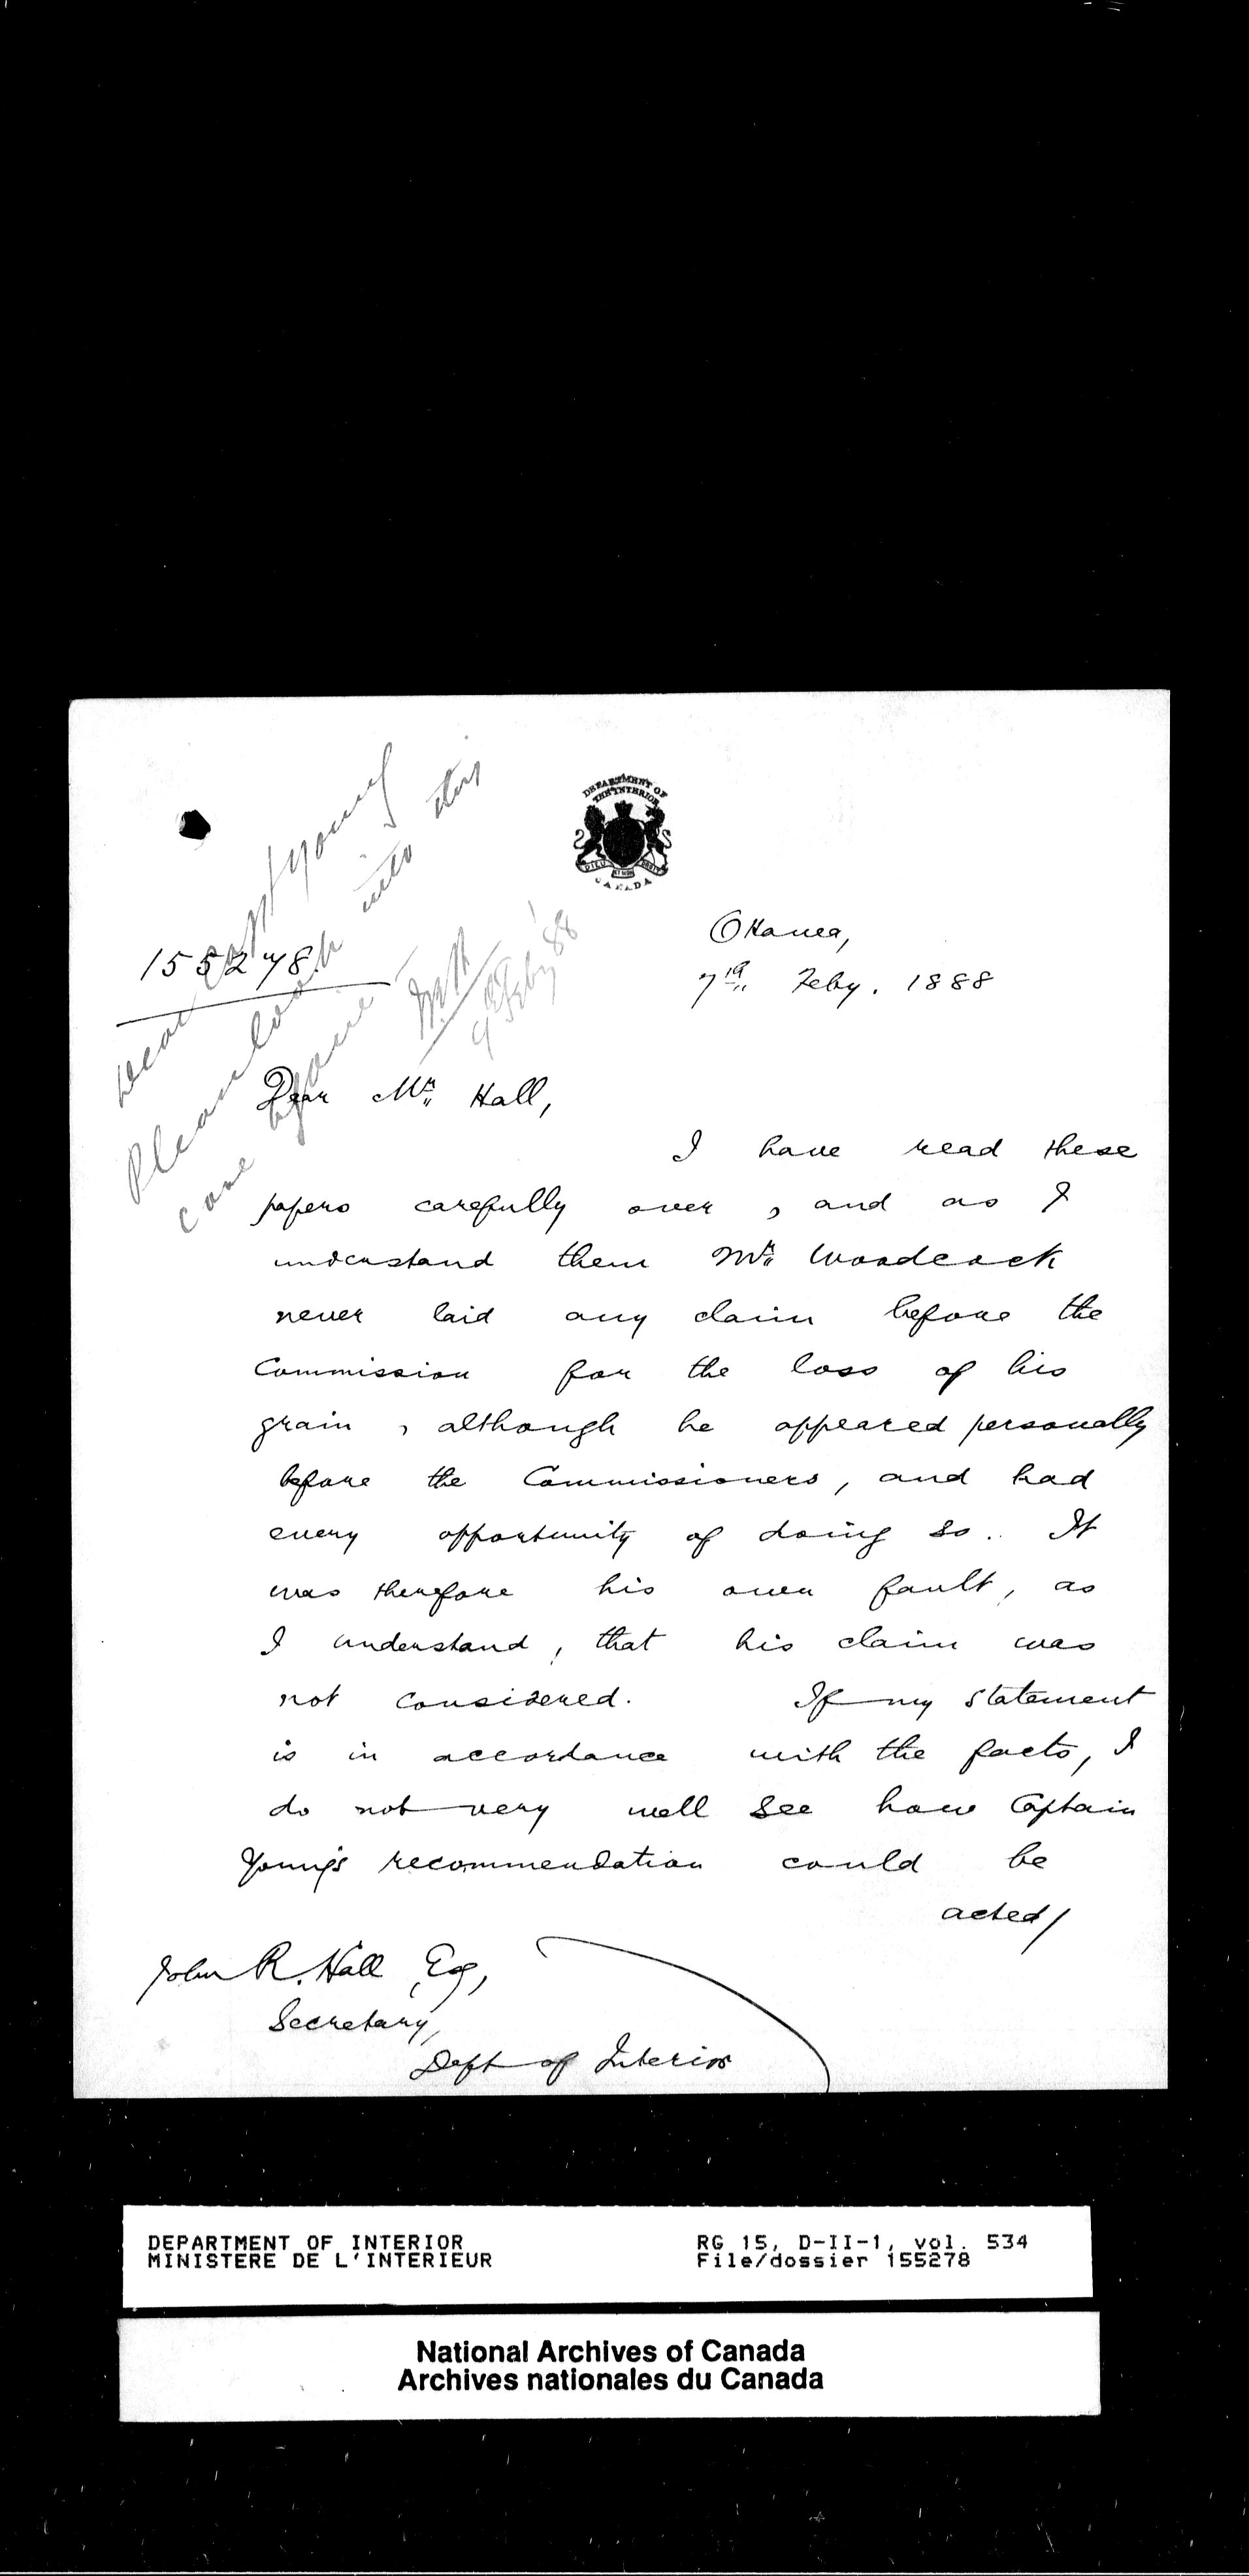 DEPARTMENT OF
THE INTERIOR
CANADA
155278.
Dear Capt Young
Please look into this
case again
9 Feby '88
Ottawa,
7th Feby. 1888
Dear Mr. Hall,
I have read these
papers carefully over, and as I
understand them Mr. Woodcock
never laid any claim before the
Commission for the loss of his
grain, although he appeared personally
before the Commissioners, and had
every opportunity of doing so. It
was therefore his own fault, as
I understand, that his claim was
not considered. If my statement
is in accordance with the facts, I
do not very well see how Captain
Young's recommendation could be
acted/
John R. Hall Esq,
Secretary,
Dept of Interior
DEPARTMENT OF INTERIOR
MINISTERE DE L'INTERIEUR
RG 15, D-II-1, vol. 534
File/dossier 155278
National Archives of Canada
Archives nationales du Canada